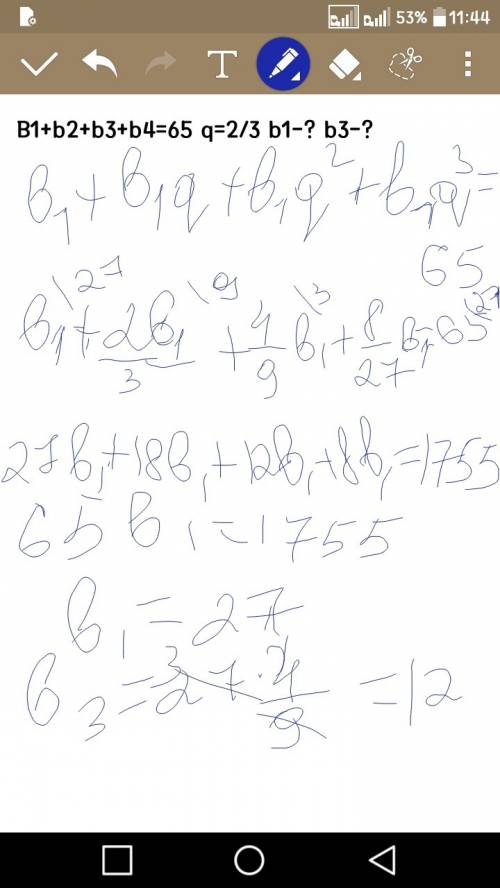 53% 11:44
T
B1+b2+b3+b4=65 q=2/3 b1-? b3-?
b₁+b₁q+b₁q²+b₁q³=
65
b₁\27+2b₁/3\9+4/9b₁\3+8/27b₁=65\27
27b₁+18b₁+12b₁+8b₁=1755
65b₁=1755
b₁=27
b₃=27·4/9=12